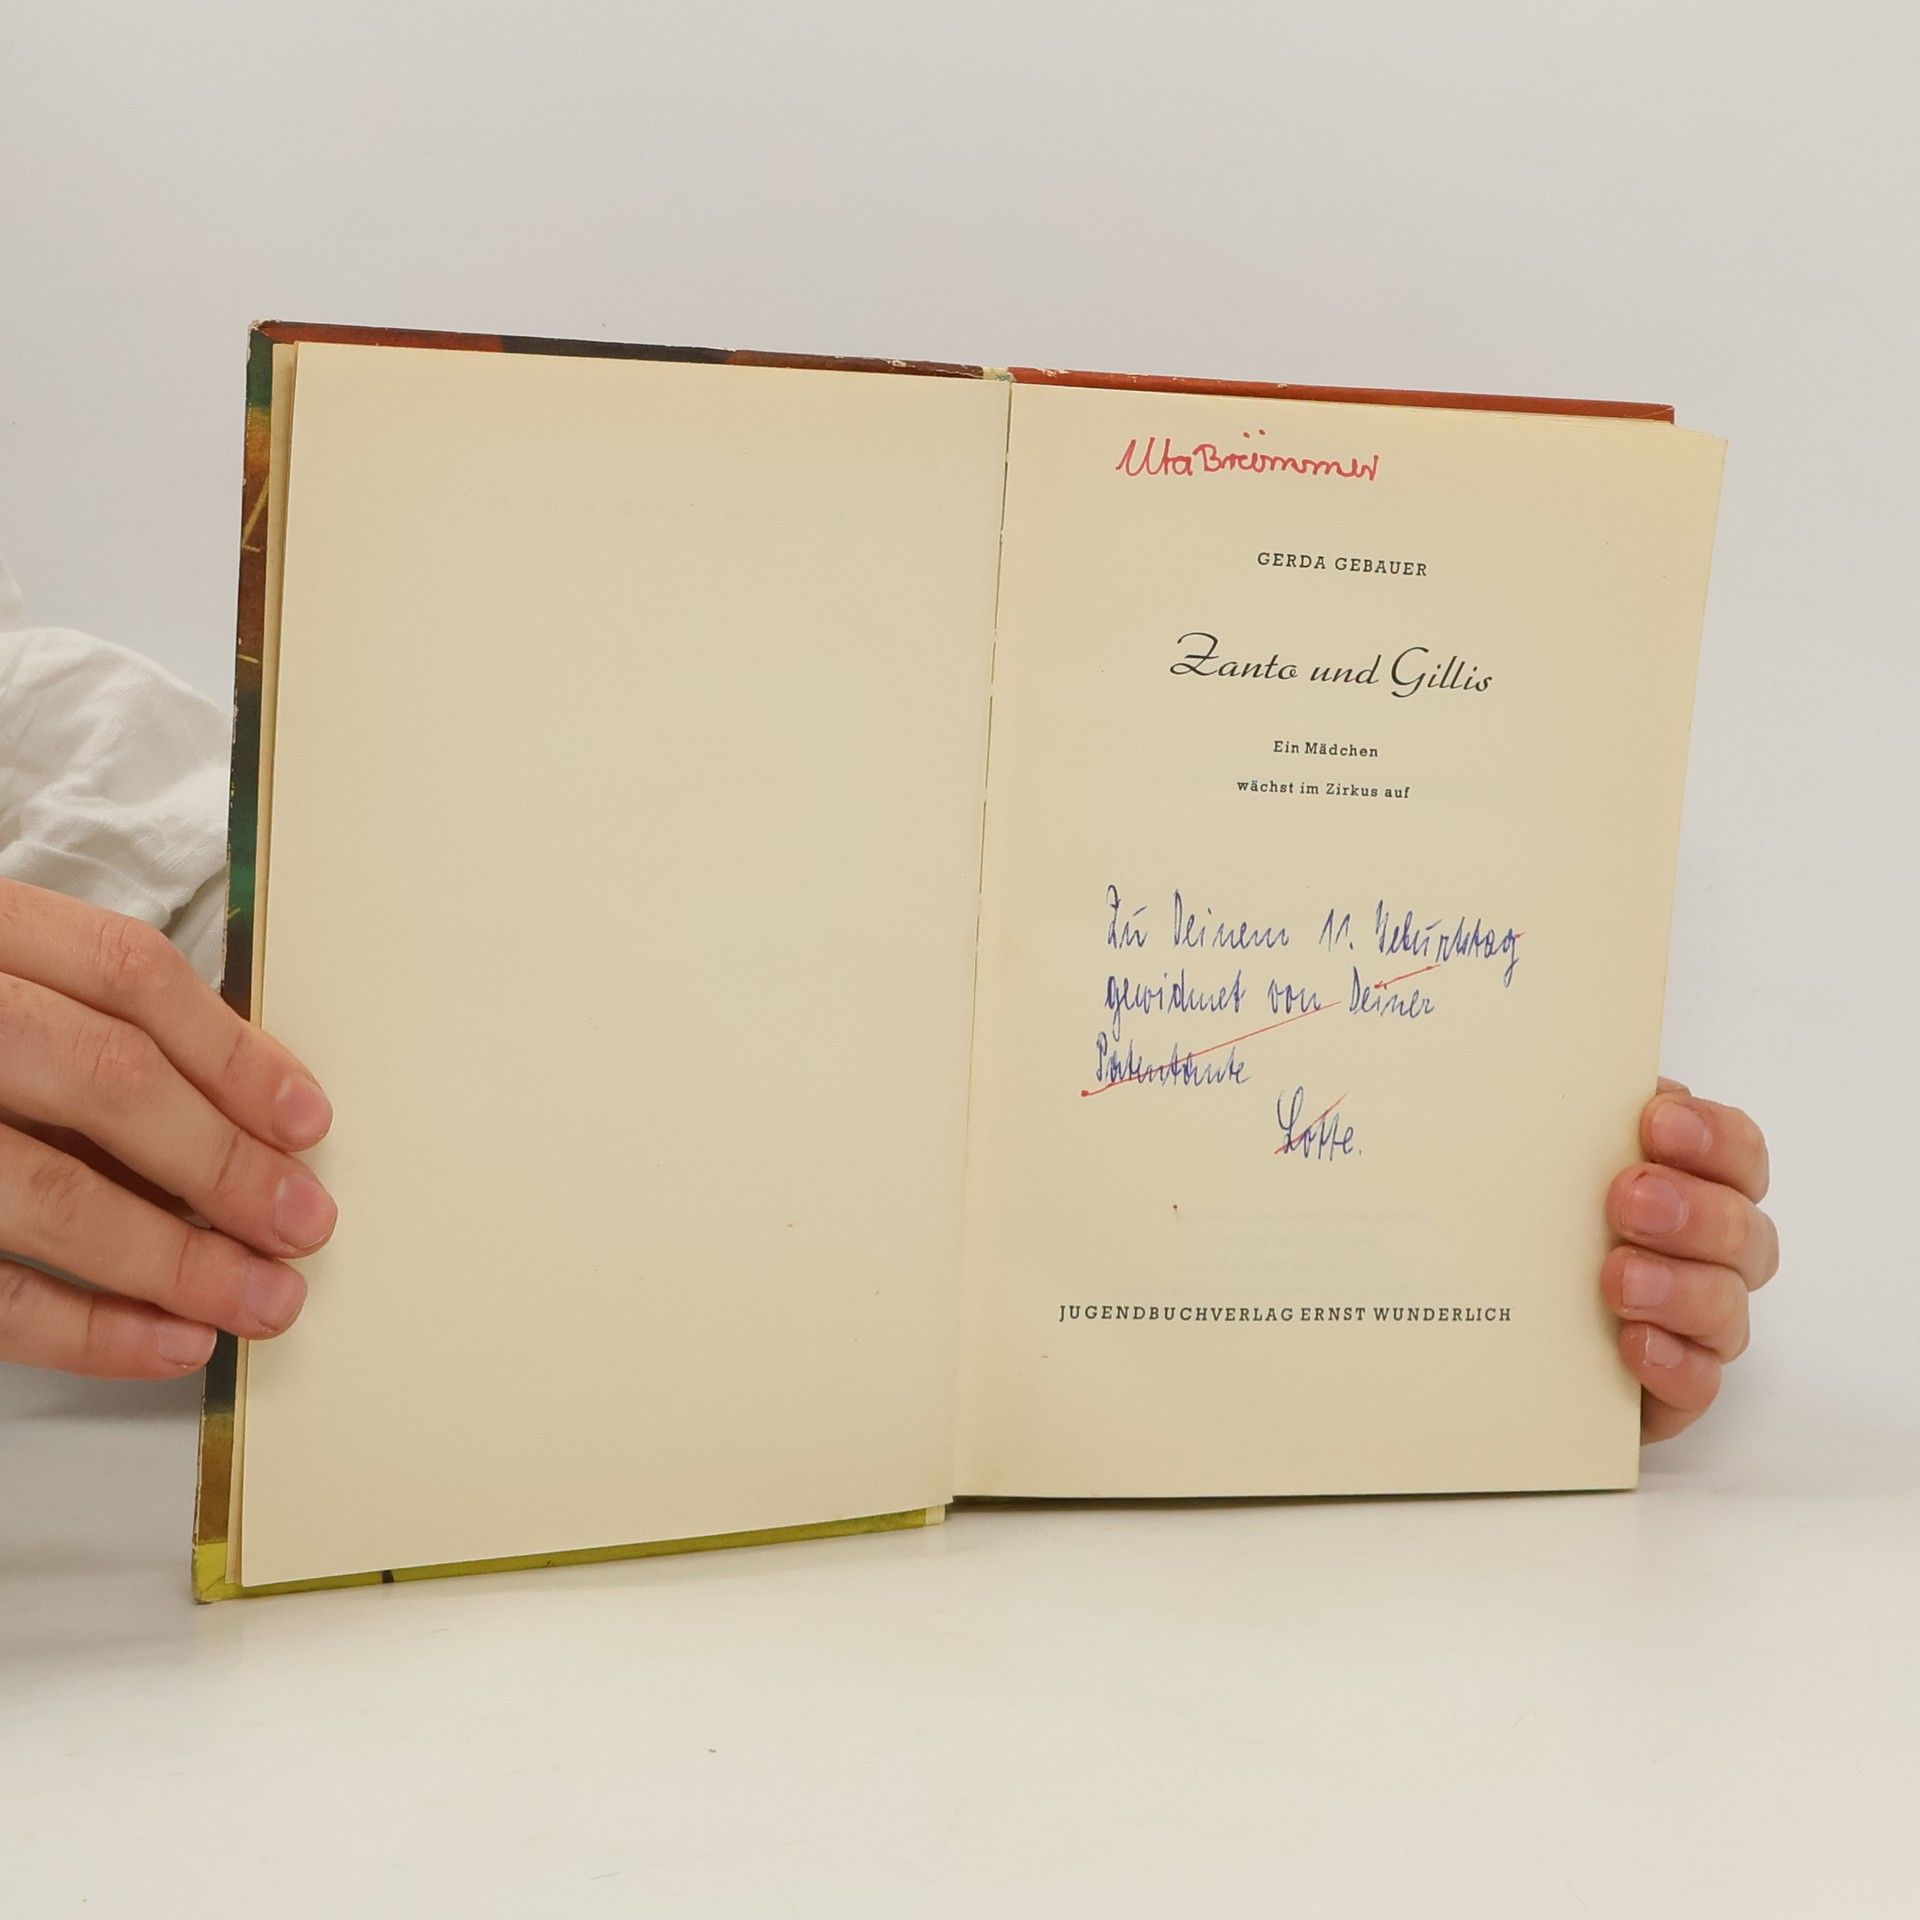 Uta Brümmer
GERDA GEBAUER
Zanto und Gillis
Ein Mädchen
wächst im Zirkus auf
Zu Deinem 11. Geburtstag
gewidmet von Deiner
Patentante
Lotte.
JUGENDBUCHVERLAG ERNST WUNDERLICH